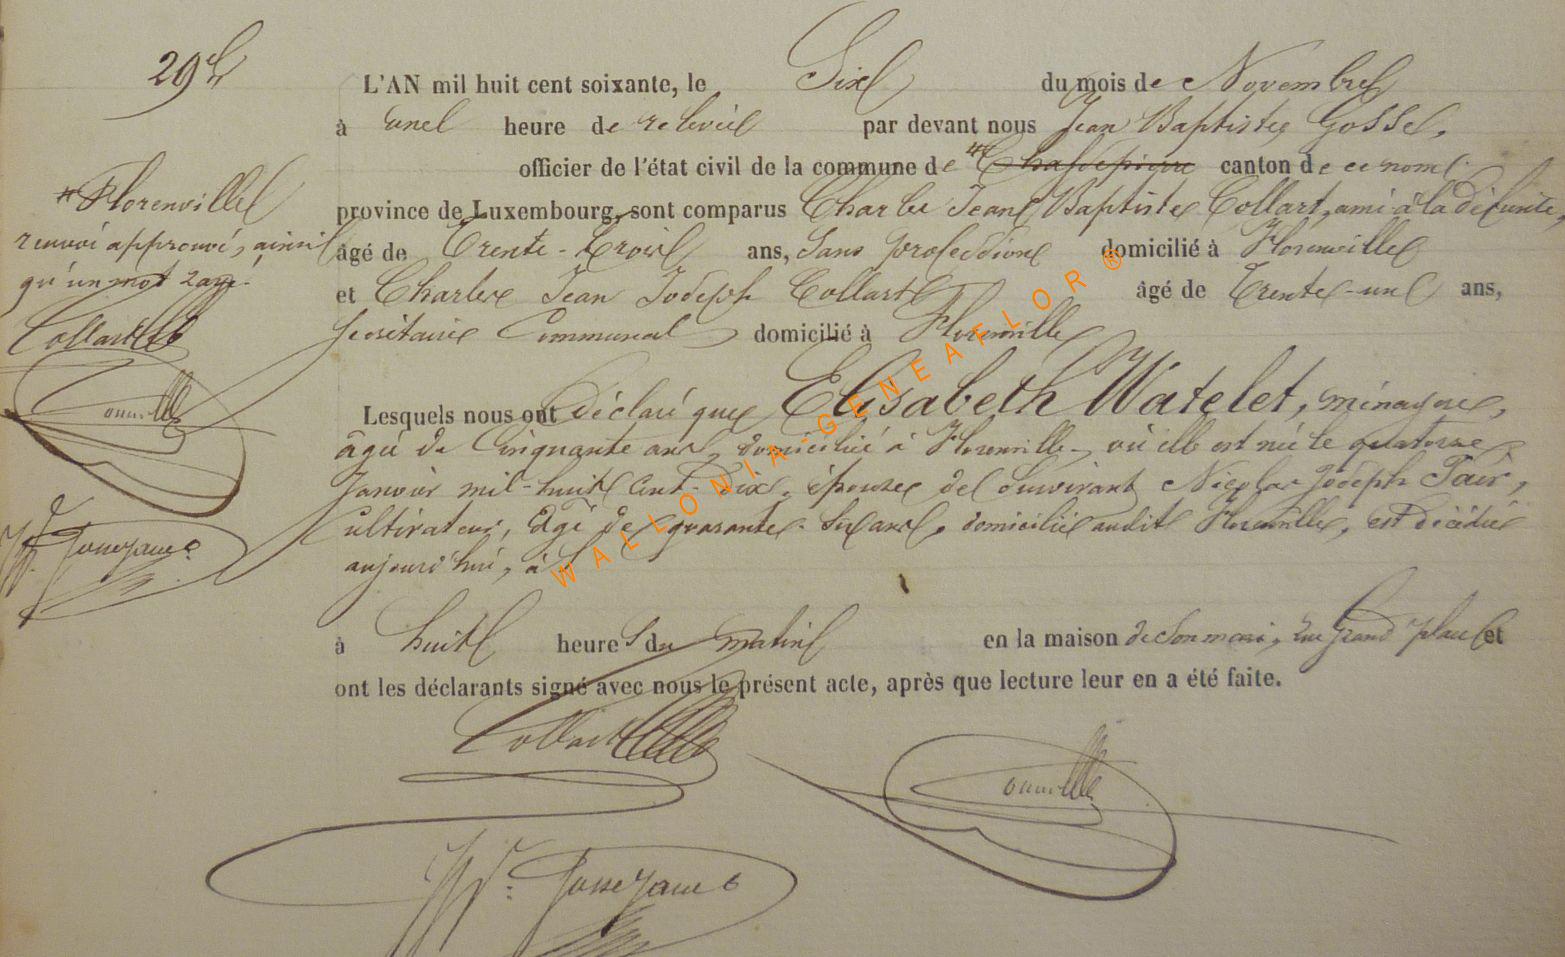 29e
L'AN mil huit cent soixante, le Six du mois de Novembre
à une heure de relevée par devant nous Jean Baptiste Gosse,
officier de l'état civil de la commune de Chassepierre canton de ce nom
province de Luxembourg, sont comparus Charles Jean Baptiste Collart, ami à la défunte,
âgé de Trente-trois ans, sans profession domicilié à Florenville
et Charles Jean Joseph Collart âgé de Trente-un ans,
secrétaire Communal domicilié à Florenville
Lesquels nous ont déclaré que Elisabeth Watelet, ménagère,
âgée de Cinquante ans, domiciliée à Florenville, où elle est née le quatorze
Janvier mil-huit cent-dix, épouse de survivant Nicolas Joseph
Cultivateur, âgé de quarante-six ans, domicilié audit Florenville, est décédée
aujourd'hui, à
à huit heures du matin en la maison de son mari, rue Grand place et
ont les déclarants signé avec nous le présent acte, après que lecture leur en a été faite.
Florenville
renvoi approuvé, ainsi
qu'un mot rayé.
Collart
Collart
WALLONIA-GENEAFLOR ®